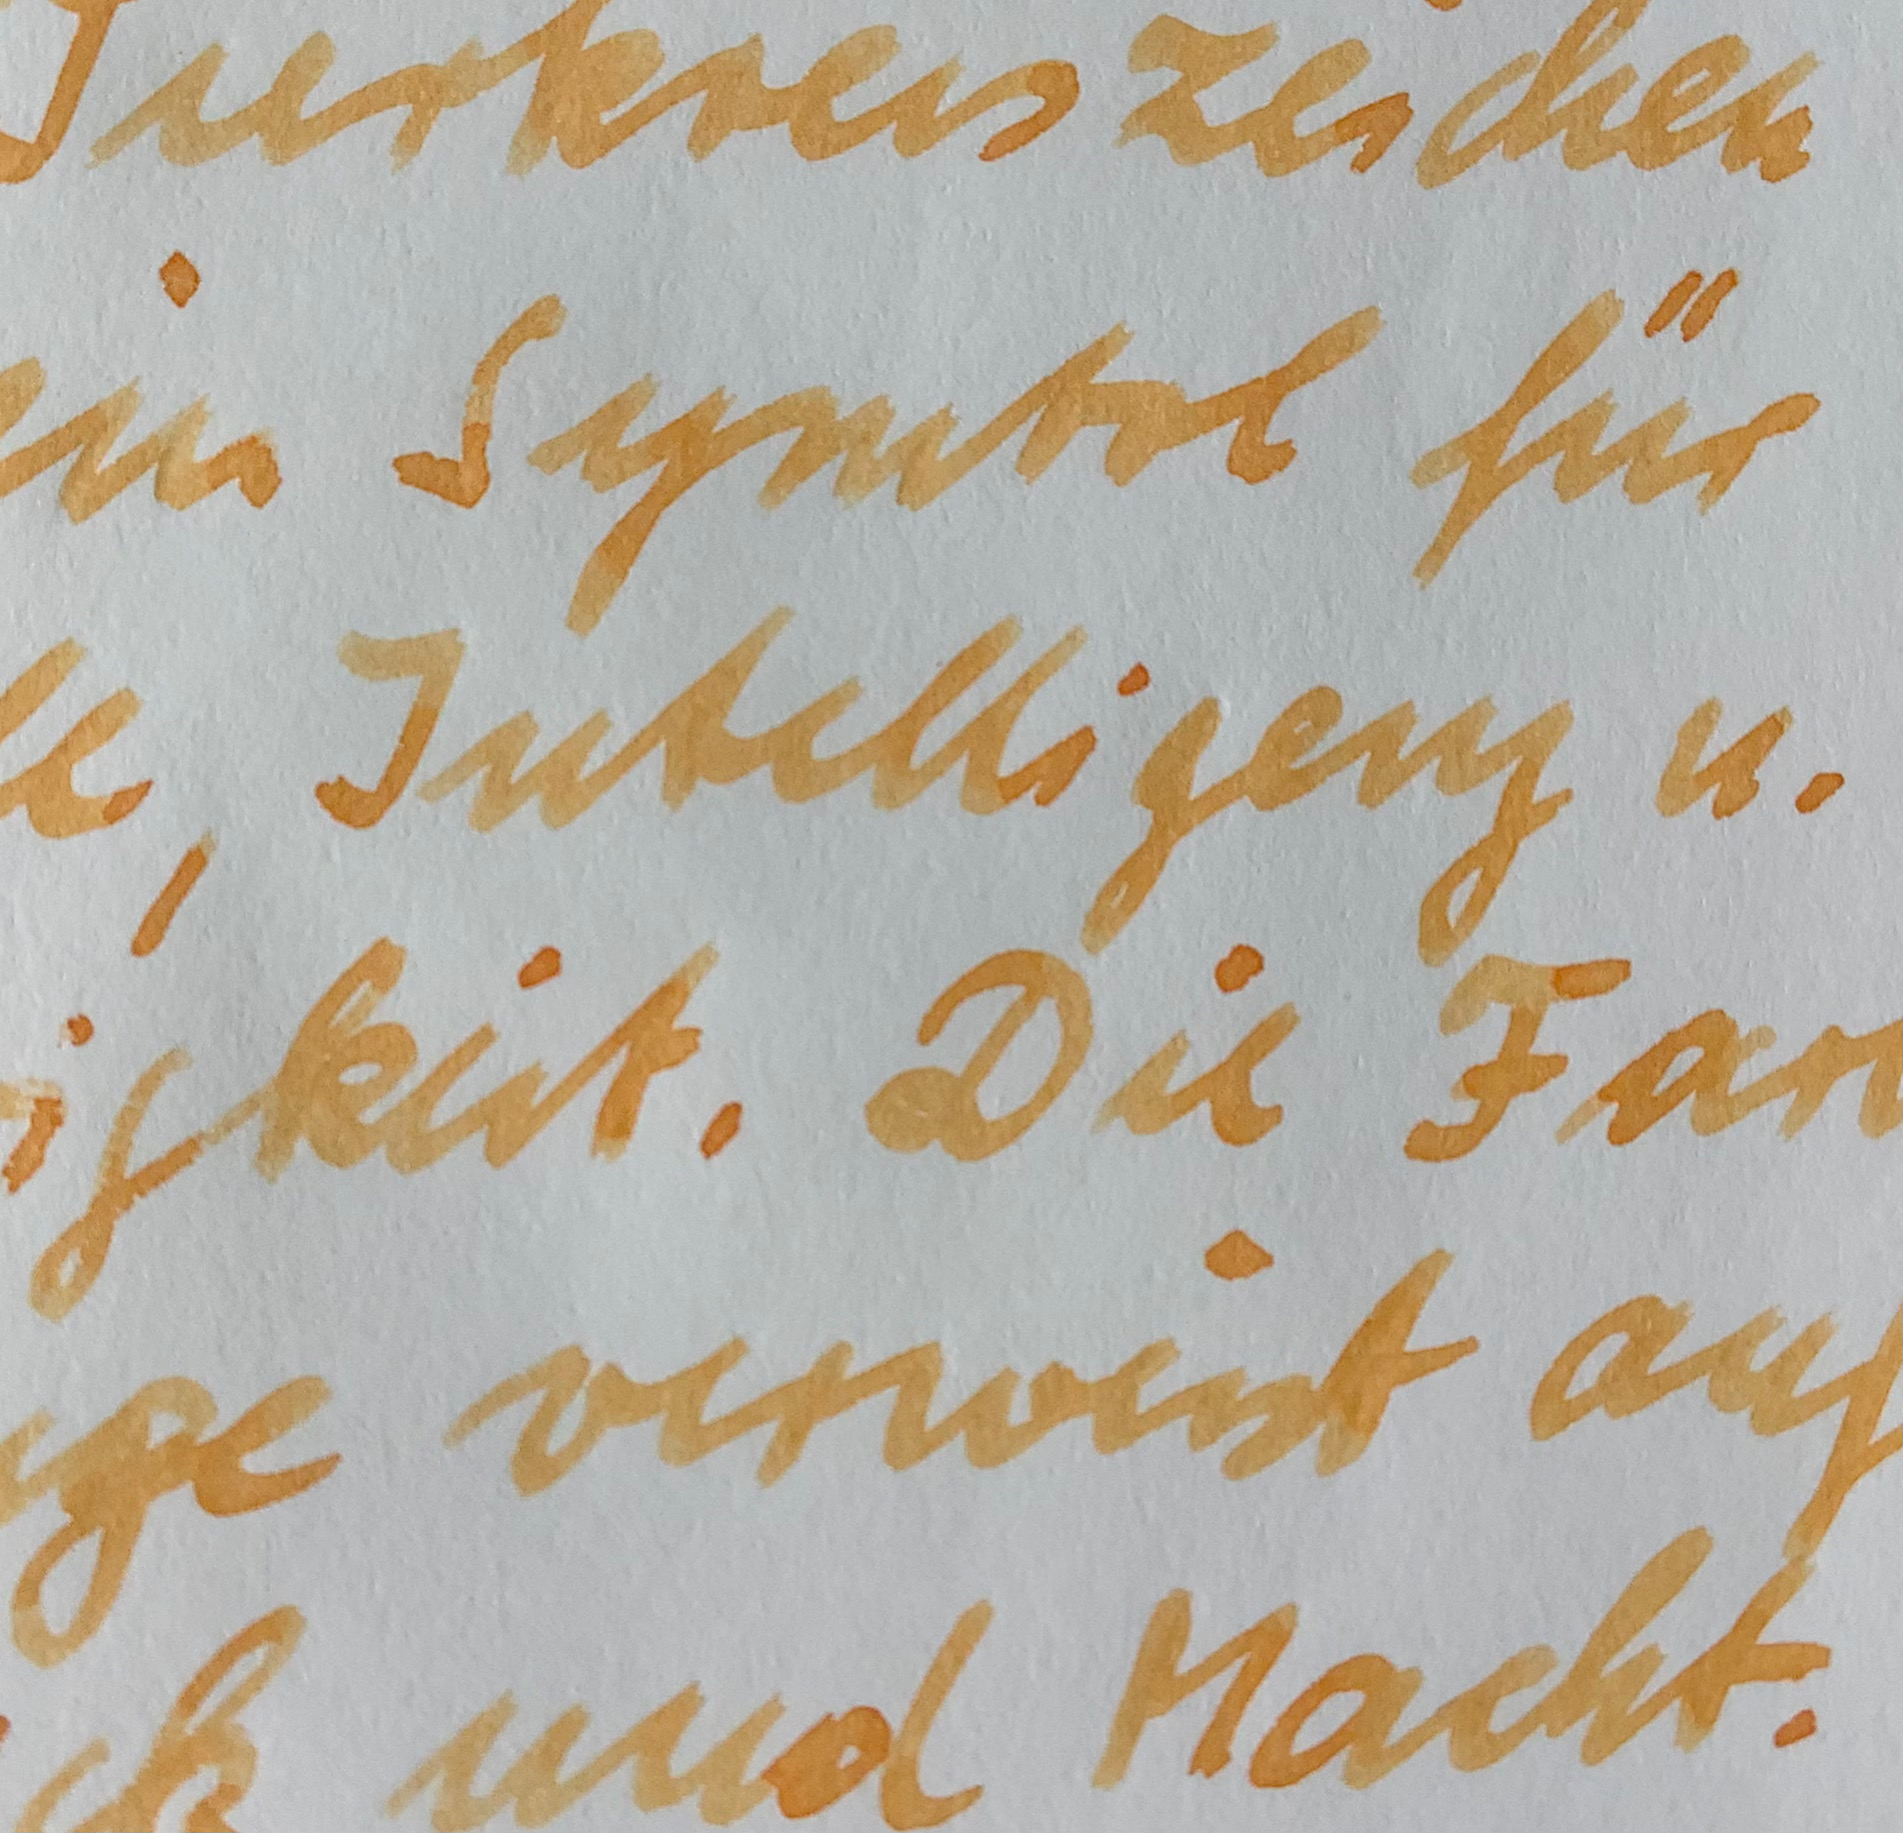 Tierkreiszeichen
ein Symbol für
Intelligenz u.
igkeit. Die Farb
nge verweist auf
ck und Macht.